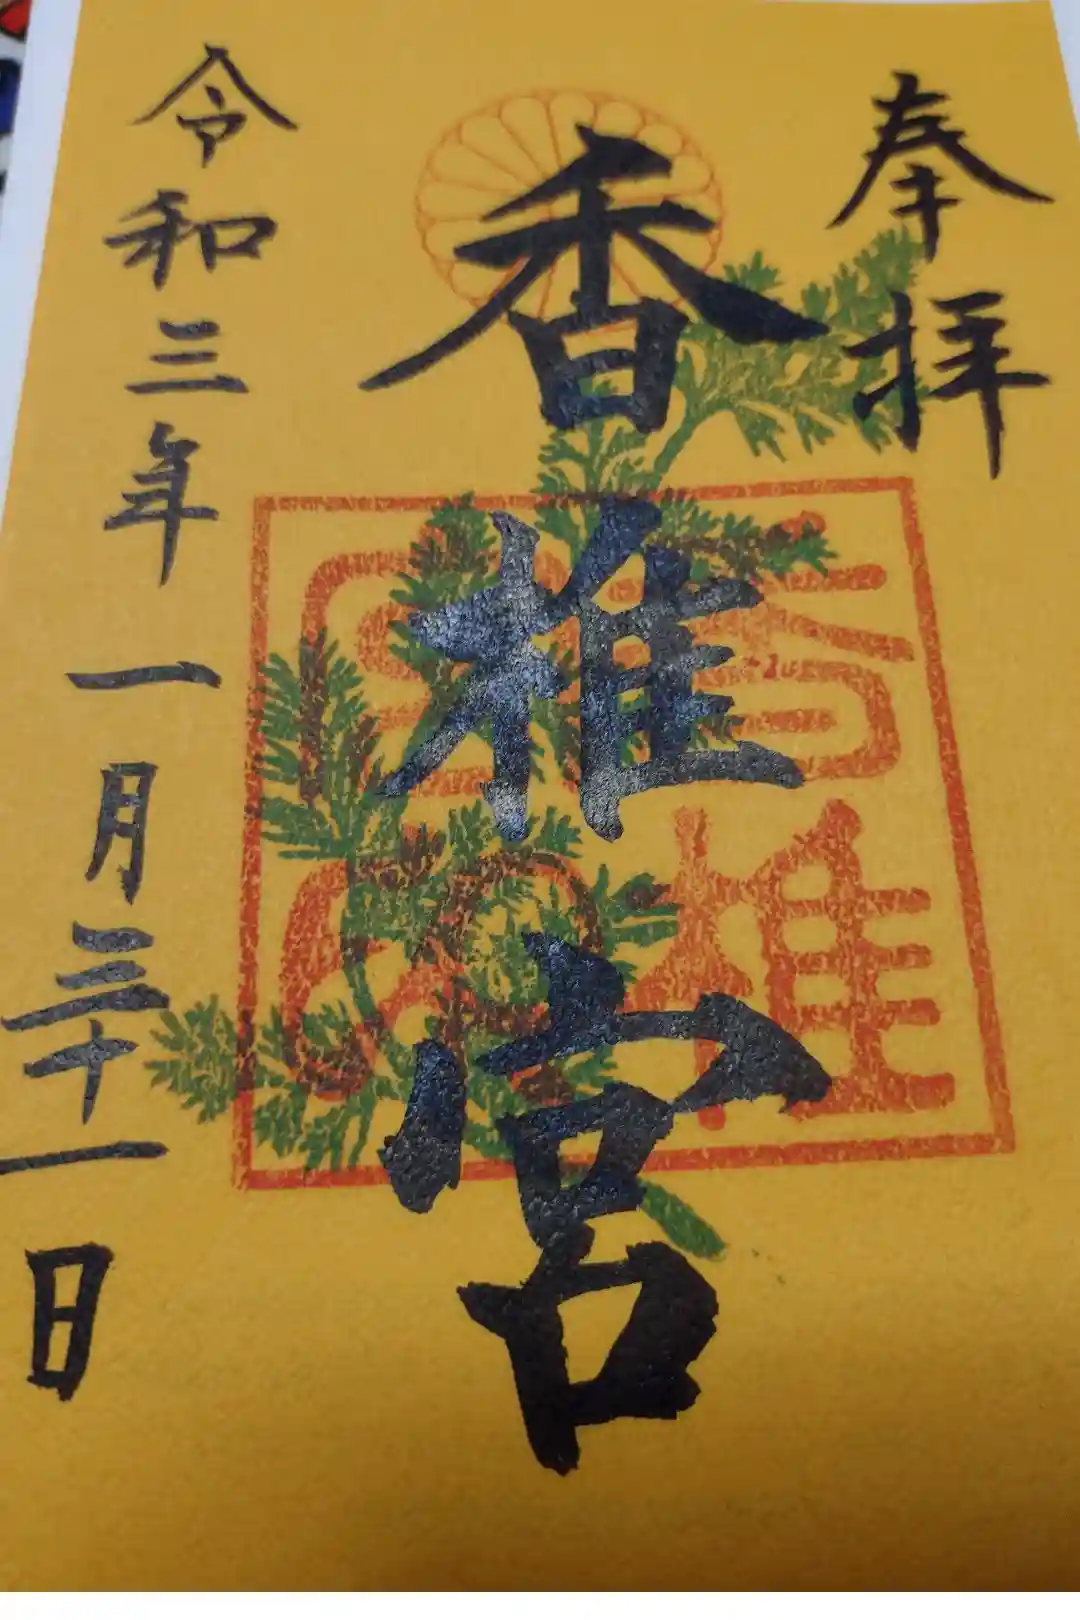 奉拝
香椎宮
香椎宮印
令和三年一月三十一日